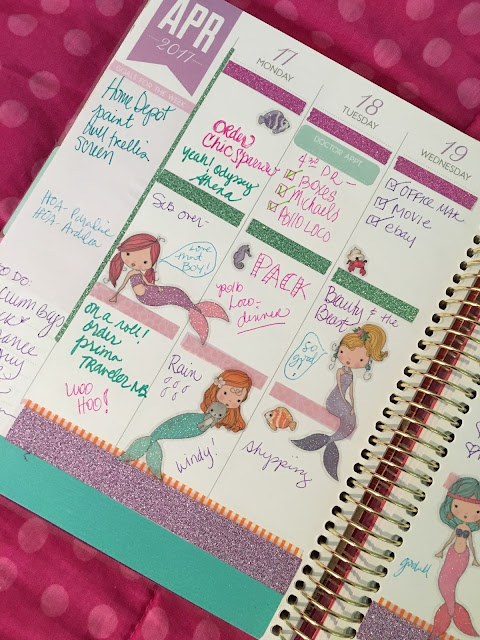 APR
2017
GOALS FOR THE WEEK
Home Depot
paint
wall trellis
screen
HOA-
HOA-
TO DO:
17
MONDAY
ORDER
Chic Sparrow
yeah! odyssey
Athena
Seb over-
Love
mint
Boy!
on a roll!
order
prima
Traveler NB
WOO
HOO!
18
TUESDAY
DOCTOR APPT
4:30 DR-
Boxes
Michaels
POLLO LOCO
PACK
pollo
Loco-
dinner
Rain
windy!
19
WEDNESDAY
OFFICE MAX
MOVIE
ebay
Beauty & the
Beast
So
good!
shipping